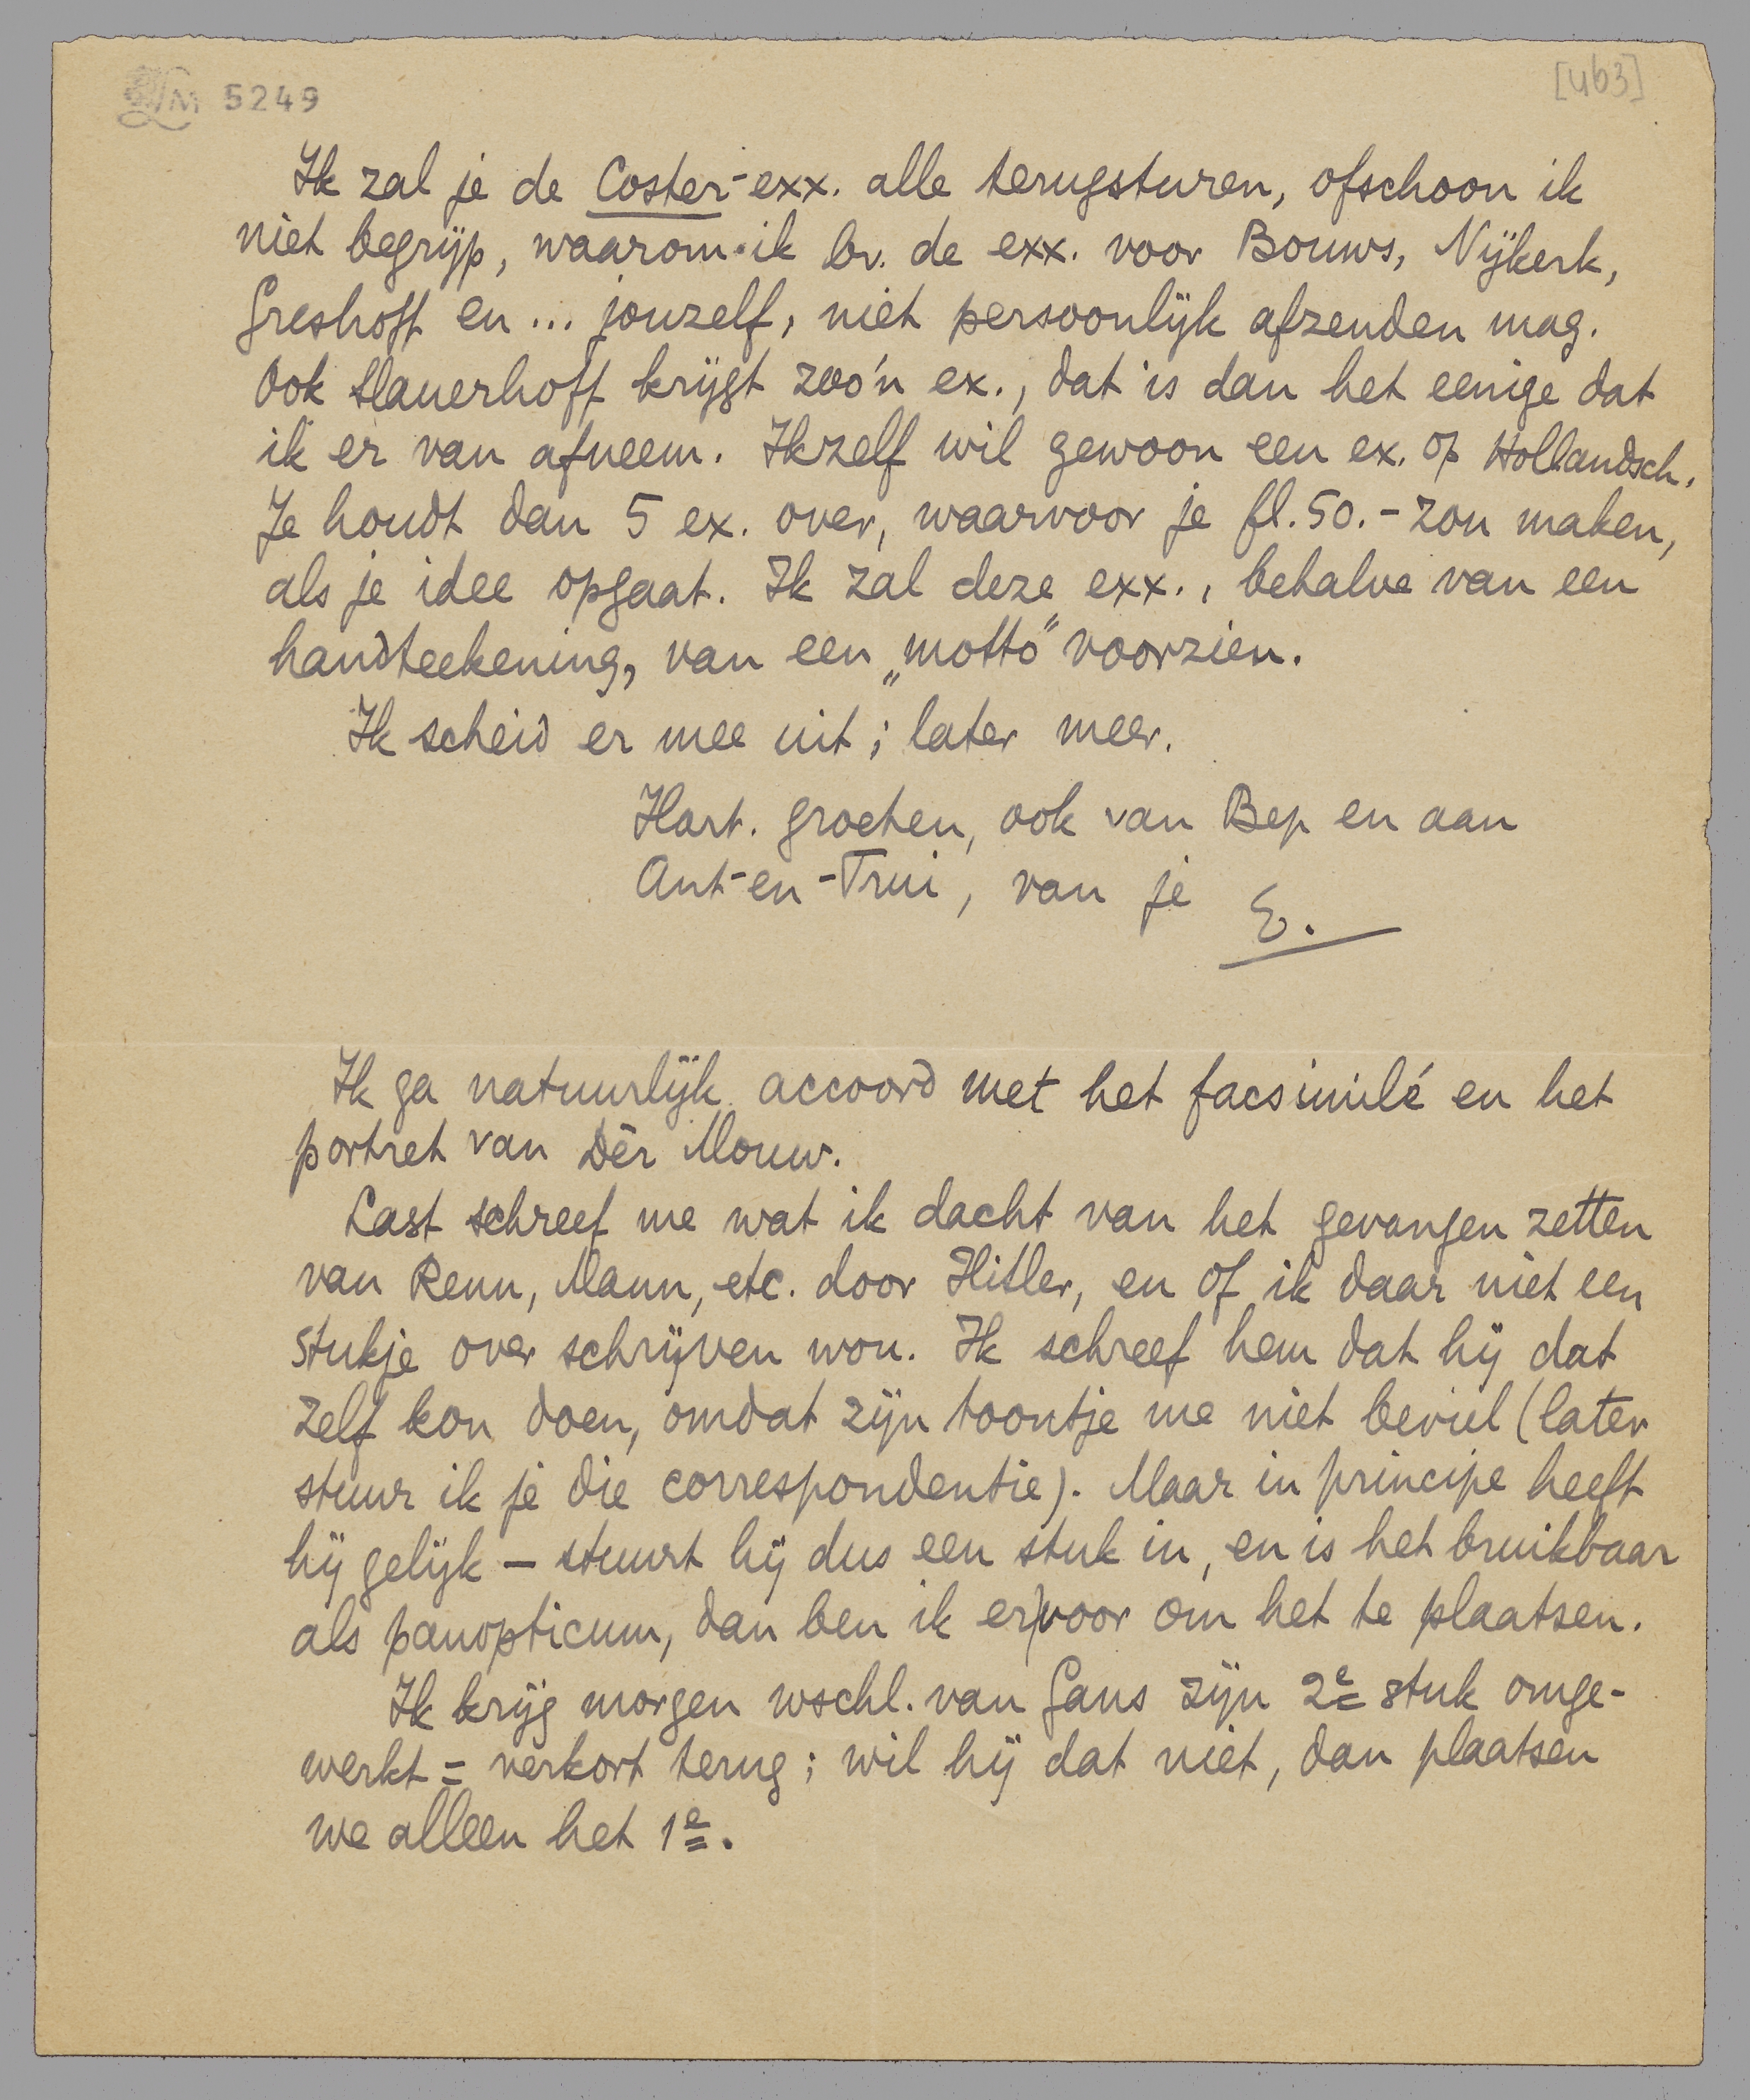 LM 5249
[463]
Ik zal je de Coster-exx. alle terugsturen, ofschoon ik
niet begrijp, waarom ik bv. de exx. voor Bouws, Nijkerk,
Greshoff en ... jouzelf, niet persoonlijk afzenden mag.
Ook Slauerhoff krijgt zoo'n ex., dat is dan het eenige dat
ik er van afneem. Ikzelf wil gewoon een ex. op Hollandsch.
Je houdt dan 5 ex. over, waarvoor je fl.50.- zou maken,
als je idee opgaat. Ik zal deze exx., behalve van een
handteekening, van een „motto” voorzien.
Ik scheid er mee uit; later meer.
Hart. groeten, ook van Bep en aan
Ant-en-Trui, van je E.
Ik ga natuurlijk accoord met het facsimilé en het
portret van Dèr Mouw.
Last schreef me wat ik dacht van het gevangen zetten
van Renn, Mann, etc. door Hitler, en of ik daar niet een
stukje over schrijven wou. Ik schreef hem dat hij dat
zelf kon doen, omdat zijn toontje me niet beviel (later
stuur ik je die correspondentie). Maar in principe heeft
hij gelijk – stuurt hij dus een stuk in, en is het bruikbaar
als panopticum, dan ben ik er voor om het te plaatsen.
Ik krijg morgen wschl. van Gans zijn 2e stuk omge-
werkt = verkort terug; wil hij dat niet, dan plaatsen
we alleen het 1e.